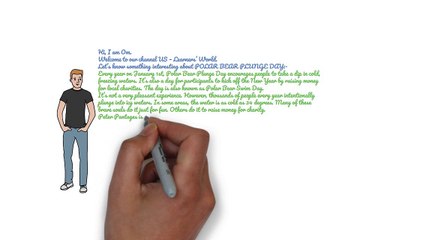 Hi, I am Om.
Welcome to our channel US - Learners' World.
Let's know something interesting about POLAR BEAR PLUNGE DAY:-
Every year on January 1st, Polar Bear Plunge Day encourages people to take a dip in cold,
freezing waters. It's also a day for participants to kick off the New Year by raising money
for local charities. The day is also known as Polar Bear Swim Day.
It's not a very pleasant experience. However, thousands of people every year intentionally
plunge into icy waters. In some areas, the water is as cold as 34 degrees. Many of these
brave souls do it just for fun. Others do it to raise money for charity.
Peter Pantages is